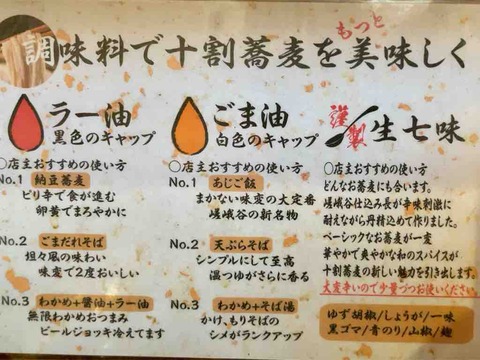 調味料で十割蕎麦をもっと美味しく
ラー油
黒色のキャップ
〇店主おすすめの使い方
No.1 納豆蕎麦
ピリ辛で食が進む
卵黄でまろやかに
No.2 ごまだれそば
坦々風の味わい
味変で2度おいしい
No.3 わかめ+醤油+ラー油
無限わかめおつまみ
ビールジョッキ冷えてます
ごま油
白色のキャップ
〇店主おすすめの使い方
No.1 あじご飯
まかない味変の大定番
嵯峨谷の新名物
No.2 天ぷらそば
シンプルにして至高
温つゆがさらに香る
No.3 わかめ+そば湯
かけ、もりそばの
シメがランクアップ
謹製 生七味
〇店主おすすめの使い方
どんなお蕎麦にも合います。
嵯峨谷仕込み長が辛味刺激に
耐えながら丹精込めて作りました。
ベーシックなお蕎麦が一変
華やかで爽やかな和のスパイスが
十割蕎麦の新しい魅力を引き出します。
大変辛いので少量づつお使いください。
ゆず胡椒/しょうが/一味
黒ゴマ/青のり/山椒/麹